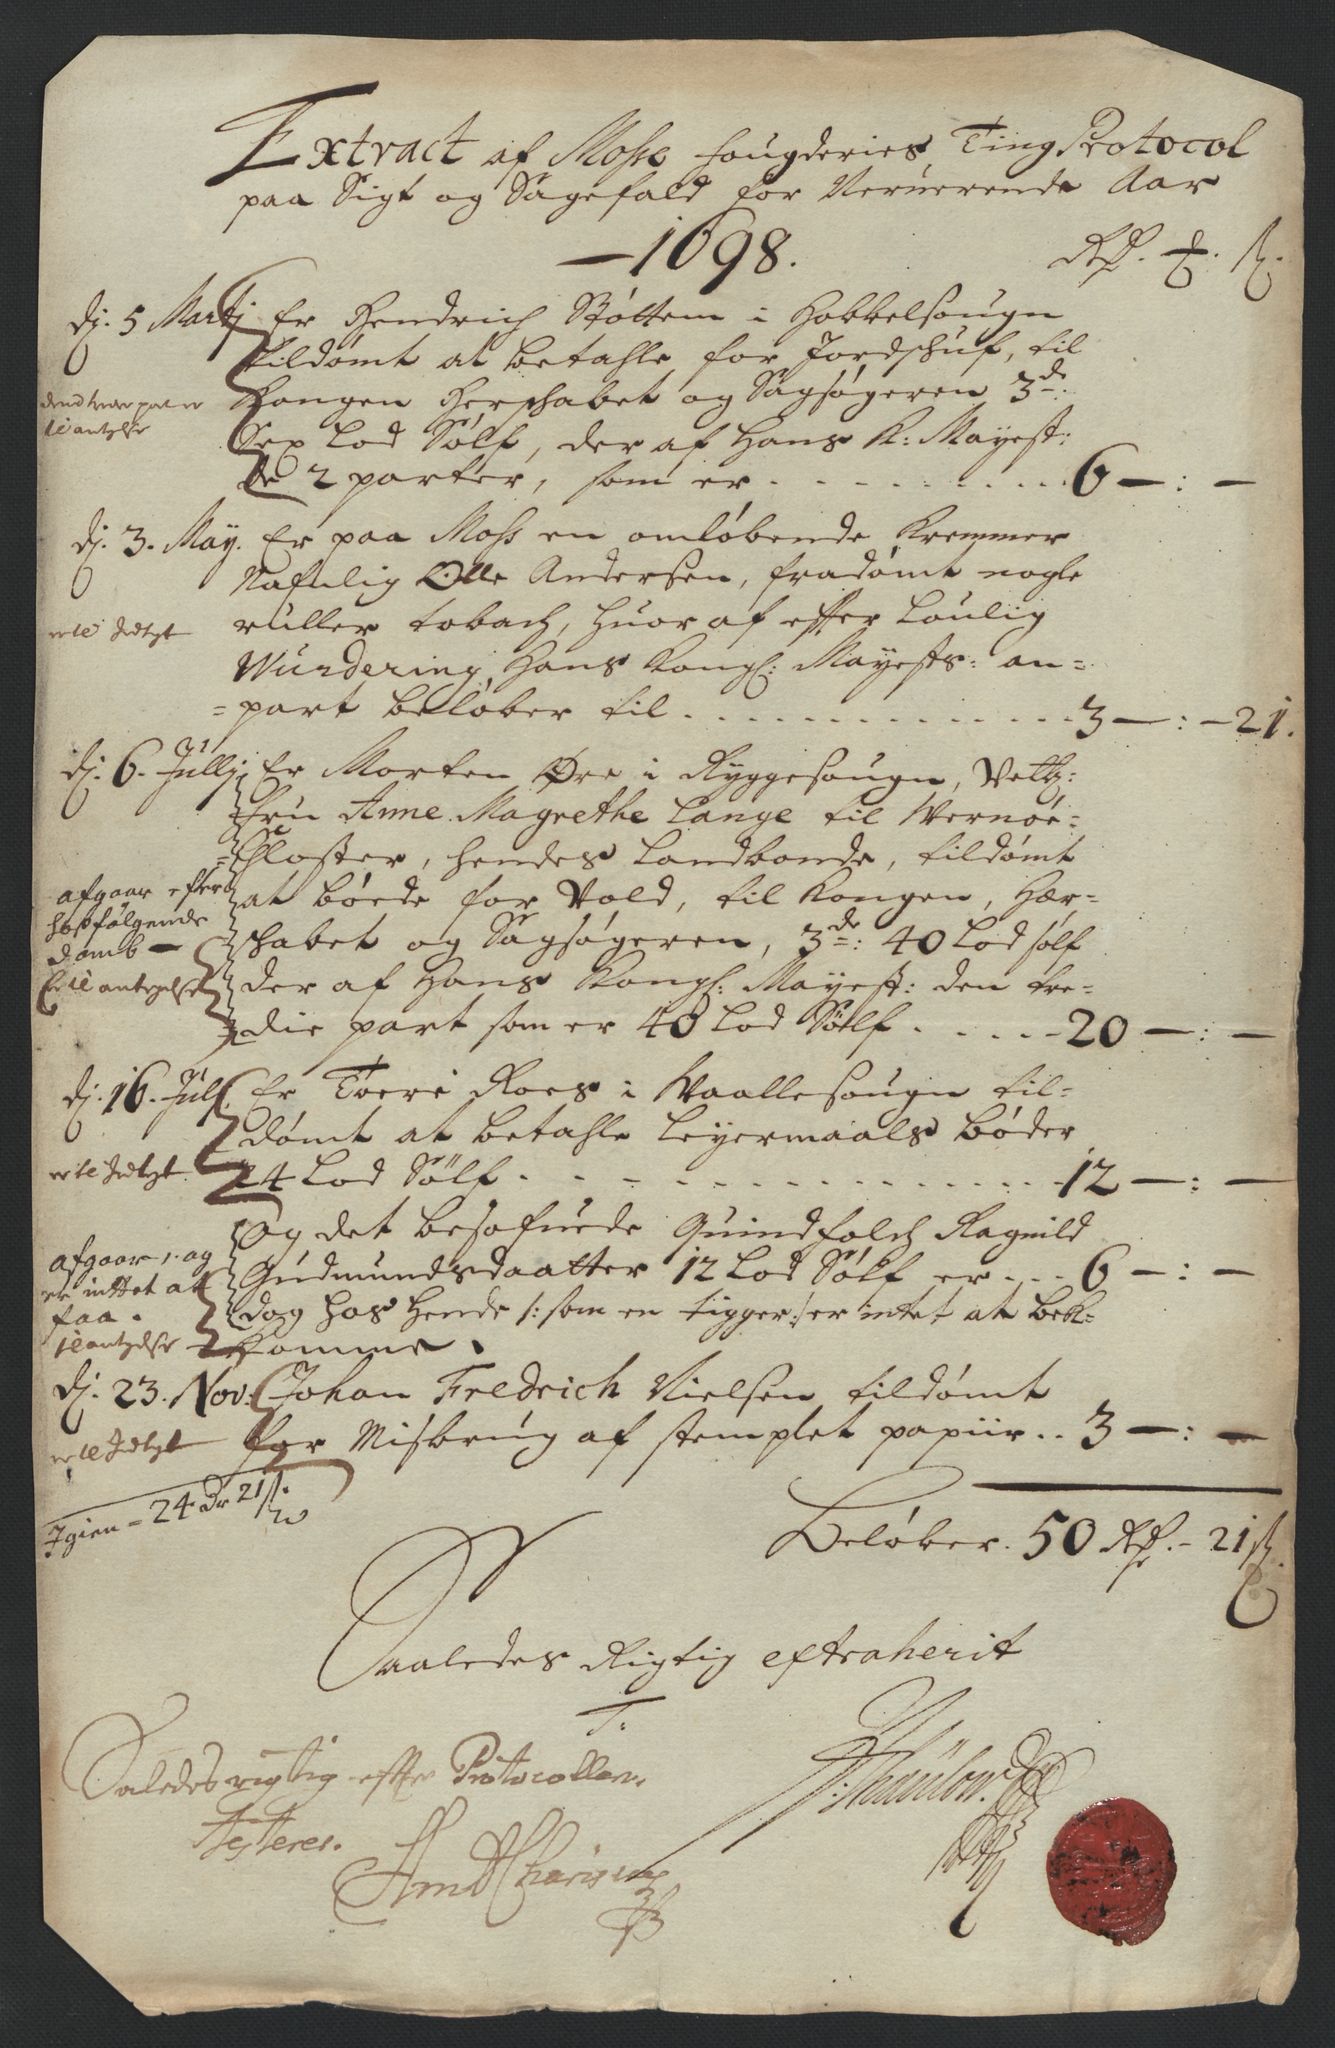 Extract af Mosse fougderies Ting Protocol
paa Sigt og Sagefald for Nerværende Aar
1698.
Rdr. ß.
dj. 5 Martj Er Hendrich Støttem i Hobbelsougn
tildømt at betahle for Jordschuf, til
Kongen Herschabet og Sagsøgeren 3de:
Sex Lod Sølf, der af Hans K: Mayest:
de 2 parter, som er 6 — : —
dj. 3. May. Er paa Moss en omløbende Kremmer
Nafnlig Olle Andersen, fradømt nogle
ruller tobach, huor af effter Loulig
Wurdering, Hans Kongl: Mayests: an=
=part beløber til 3 — : — 21.
dj. 6. Jullj. Er Morten Øre i Ryggesougn, Velb:
fru Anne Magrethe Lange til Wernøe=
=Closter, hendes Landbonde, tildømt
at bøede for Vold, til Kongen, Her=
schabet og Sagsøgeren, 3de: 40 Lod sølf
der af Hans Kongl: Mayest: den tre=
die part som er 40 Lod Sølf 20 — : —
afgaar efter
hosfølgende
domb —
dj. 16. Jul. Er Toere Roes i Waallesougn til=
dømt at betahle Leyermaals bøder
24 Lod Sølf 12 — : —
Og det besofuede Quindfolch Ragnild
Gudmundsdaatter 12 Lod Sølf er 6 — : —
dog hos hende /: som en tigger :/ er intet at bek=
komme.
afgaar, og
er inttet at
faa.
dj. 23. Nov. Johan Fredrich Nielsen tildømt
for Misbrug af stemplet papiir .. 3 — : —
Igien = 24 dr 21 ß.
Beløber. 50 Rdr. - 21 ß.
Saaledes Rigtig extraherit
T.
Saaledes rigtig effter Protocollen
testerer.